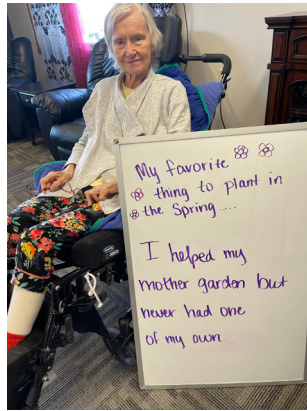 My favorite
thing to plant in
the Spring....
I helped my
mother garden but
never had one
of my own.